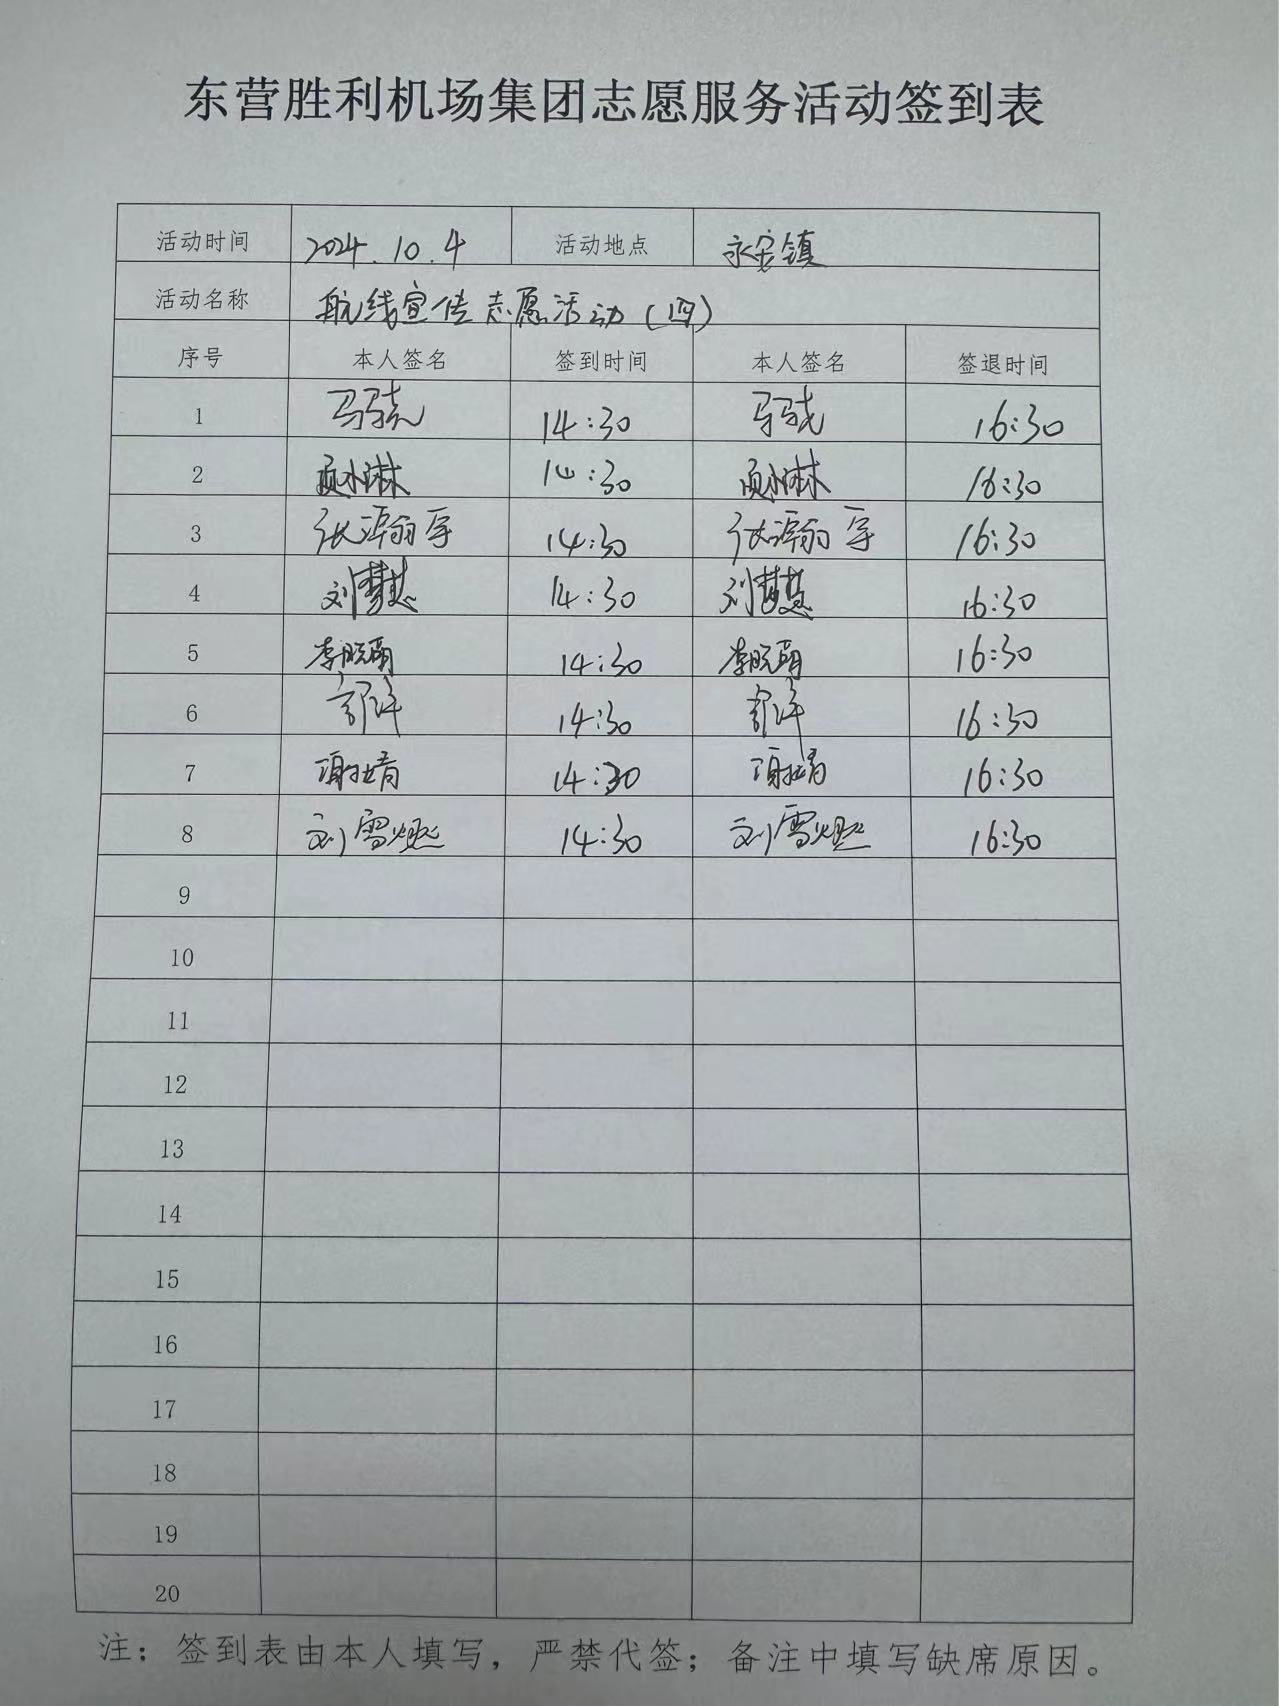 东营胜利机场集团志愿服务活动签到表
活动时间 2024.10.4 活动地点 永安镇
活动名称 航线宣传志愿活动(四)
序号 本人签名 签到时间 本人签名 签退时间
1 马骁 14:30 马骁 16:30
2 14:30 16:30
3 14:30 16:30
4 刘梦慧 14:30 刘梦慧 16:30
5 李晓萌 14:30 李晓萌 16:30
6 14:30 16:30
7 14:30 16:30
8 刘雪燃 14:30 刘雪燃 16:30
9
10
11
12
13
14
15
16
17
18
19
20
注：签到表由本人填写，严禁代签；备注中填写缺席原因。